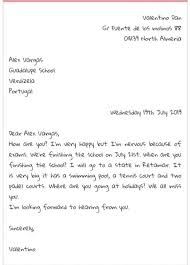 Valentino Dan
C/ Fuente de los molinos 88
04039 North Almeria
Alex Vargas
Guadalupe School
Vendizela
Portugal
Wednesday 19th July 2019
Dear Alex Vargas,
How are you? I'm very happy but I'm nervous because of
exams. We're finishing the school on July 21st. When are you
finishing the school? I will go to a state in Retamar. It
is very big it has a swimming pool, a tennis court and two
padel courts. Where are you going at holidays? We all miss
you.
I'm looking forward to hearing from you.
Sincerely,
Valentino